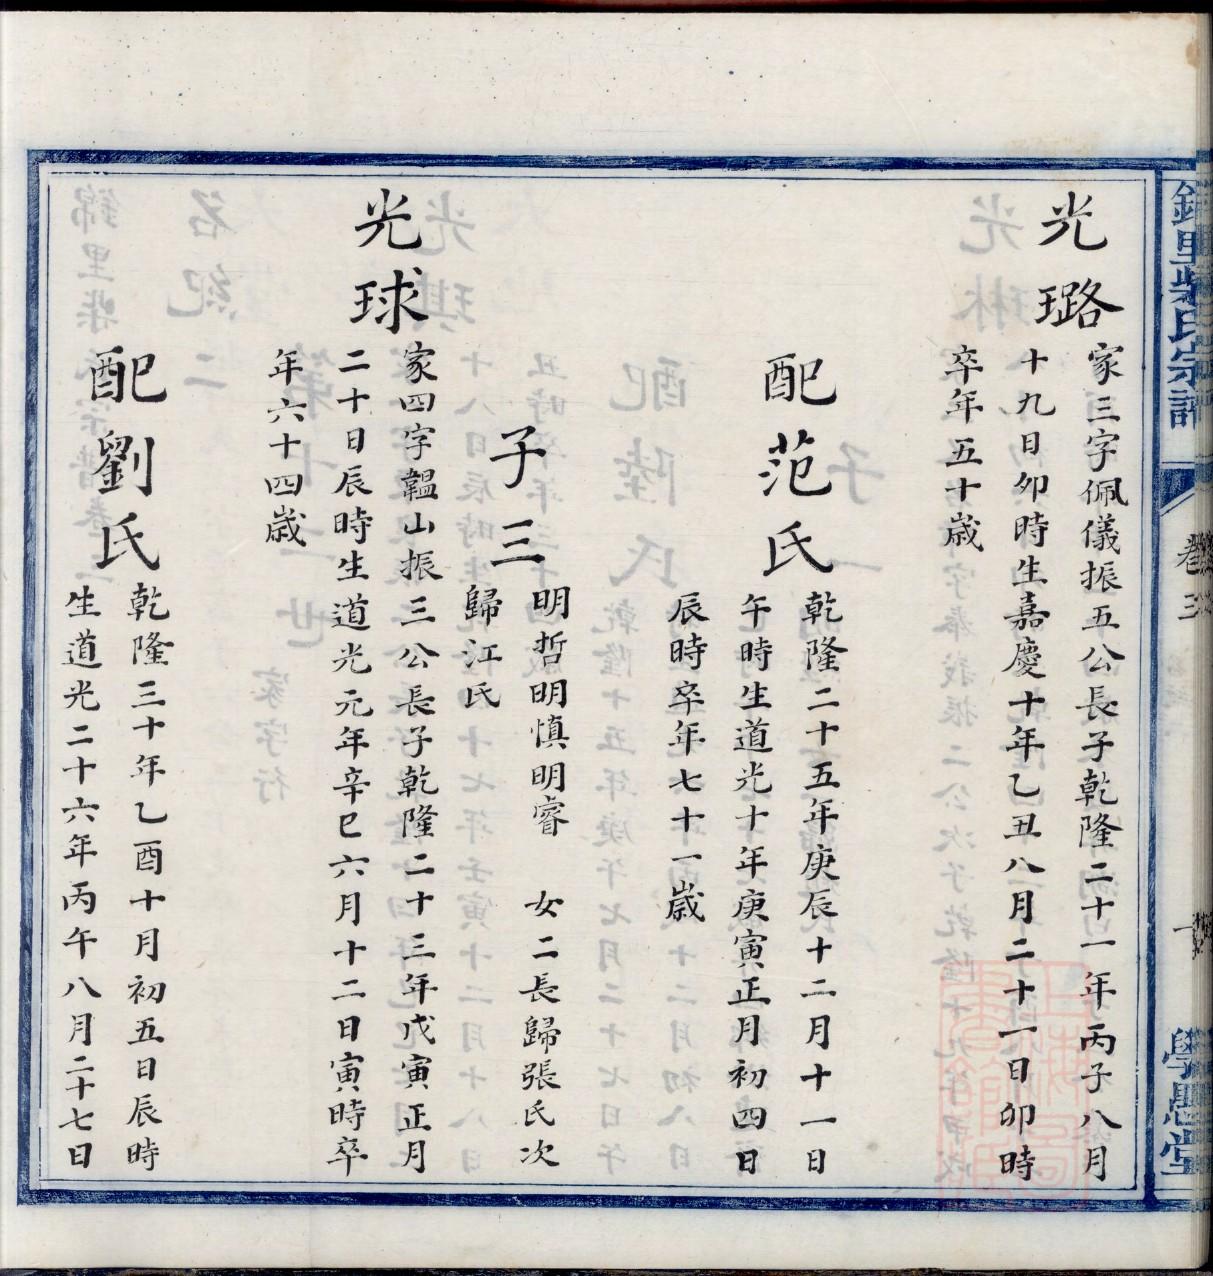 光璐
家三字佩儀振五公長子乾隆二十一年丙子八月
十九日卯時生嘉慶十年乙丑八月二十一日卯時
卒年五十歲
配范氏
乾隆二十五年庚辰十二月十一日
午時生道光十年庚寅正月初四日
辰時卒年七十一歲
子三
明哲明慎明睿 女二長歸張氏次
歸江氏
光球
家四字韞山振三公長子乾隆二十三年戊寅正月
二十日辰時生道光元年辛巳六月十二日寅時卒
年六十四歲
配劉氏
乾隆三十年乙酉十月初五日辰時
生道光二十六年丙午八月二十七日